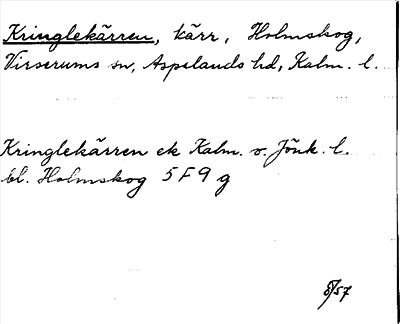 Kringlekärren, kärr, Holmskog,
Virserums sn, Aspelands hd, Kalm. l.
Kringlekärren ek Kalm. o. Jönk. l.
bl. Holmskog 5F9g
8/57